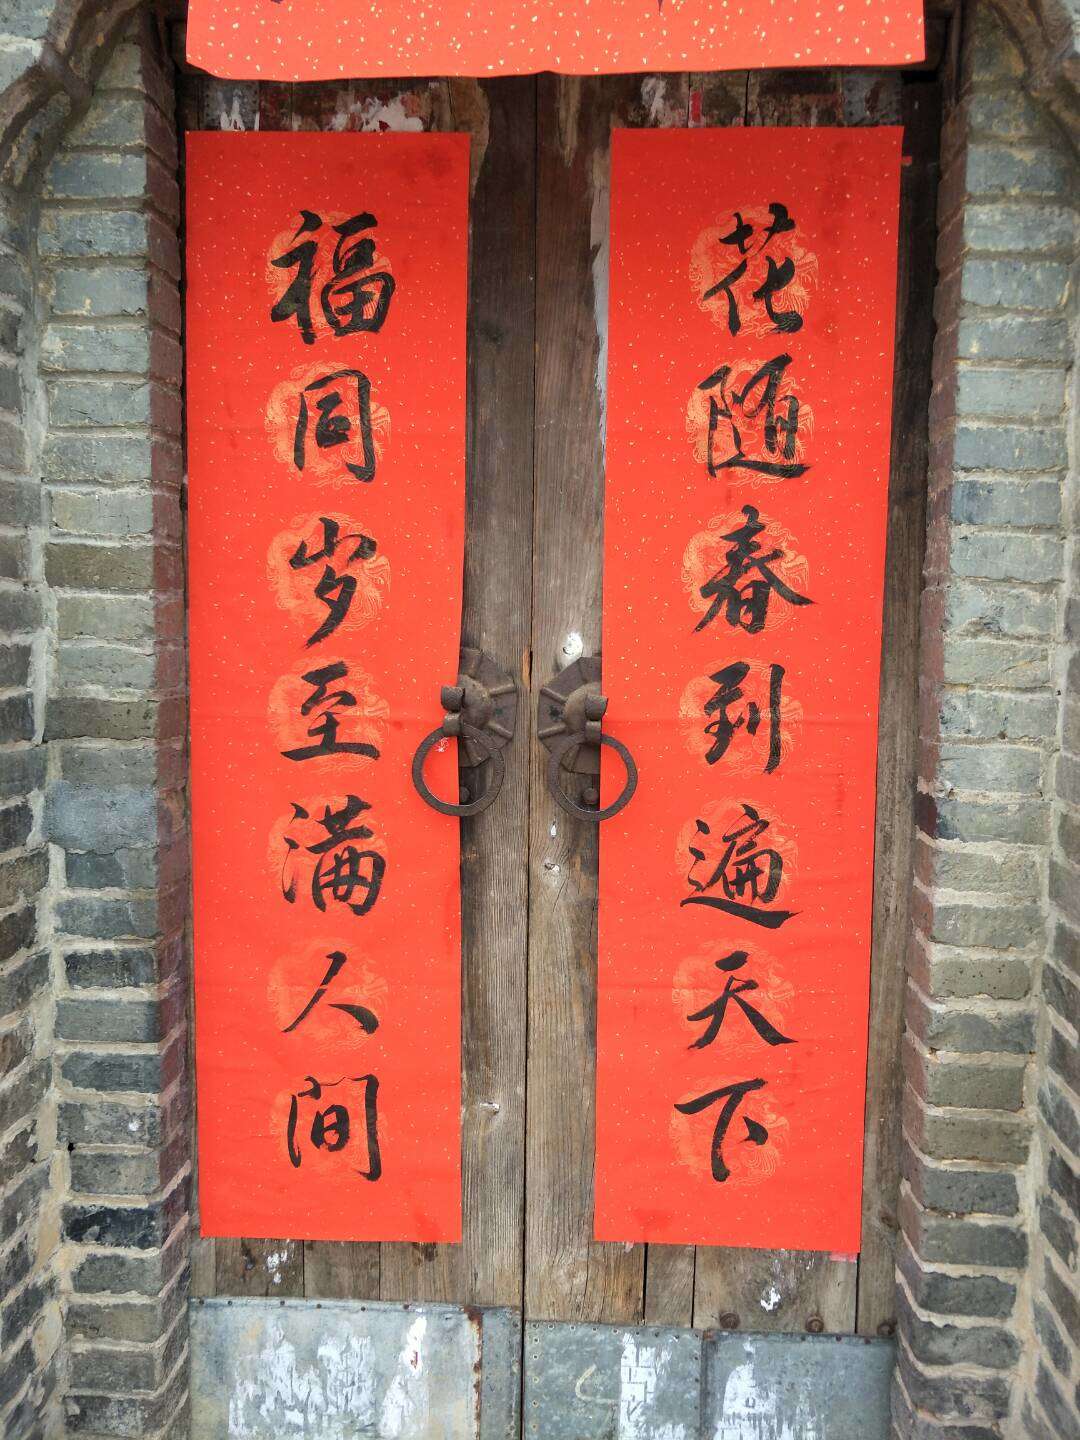 花随春到遍天下
福同岁至满人间